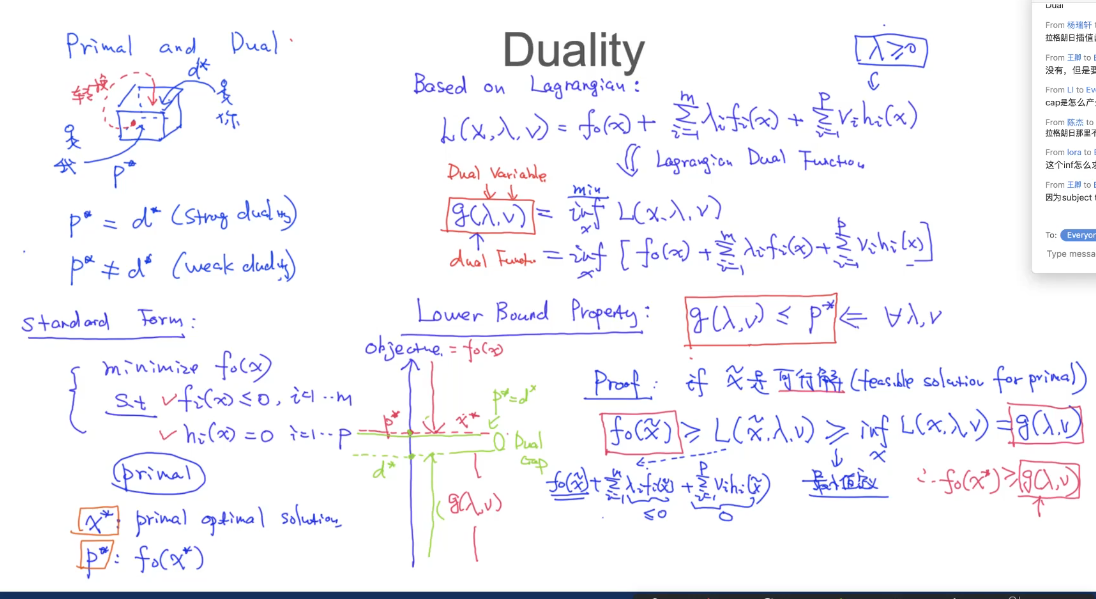 Primal and Dual
转换
d*
你
我
p*
p* = d* (Strong duality)
p* ≠ d* (weak duality)
Standard Form:
minimize f₀(x)
s.t ✓fᵢ(x) ≤ 0, i=1...m
✓hᵢ(x) = 0 i=1...p
primal
x*: primal optimal solution
p*: f₀(x*)
Duality
λ≥0
Based on Lagrangian:
L(x,λ,ν) = f₀(x) + Σᵢ₌₁ᵐ λᵢfᵢ(x) + Σᵢ₌₁ᵖ νᵢhᵢ(x)
Lagrangian Dual Function
Dual Variable
min
g(λ,ν) = inf L(x,λ,ν)
x
dual Functi = inf [f₀(x) + Σᵢ₌₁ᵐ λᵢfᵢ(x) + Σᵢ₌₁ᵖ νᵢhᵢ(x)]
x
Lower Bound Property: g(λ,ν) ≤ p* ⇐ ∀λ,ν
Objective = f₀(x)
p*
x*
p*=d*
0 Dual
Gap
d*
g(λ,ν)
Proof: if x̃是可行解(feasible solution for primal)
f₀(x̃) ≥ L(x̃,λ,ν) ≥ inf L(x,λ,ν) = g(λ,ν)
x
f₀(x̃) + Σᵢ₌₁ᵐ λᵢfᵢ(x̃) + Σᵢ₌₁ᵖ νᵢhᵢ(x̃)
≤0
0
最小值定义
∴ f₀(x*) ≥ g(λ,ν)
Dual
From 杨瑞轩
拉格朗日插值
From 王卿 to
没有，但是要
From LI to Ev
cap是怎么产
From 陈杰 to
拉格朗日那里不
From lora to
这个inf怎么
From 王卿 to
因为subject
To: Everyon
Type messa